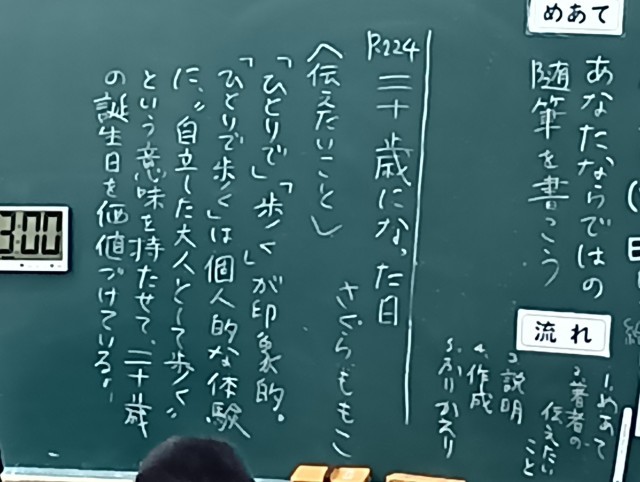 めあて
あなたならではの
随筆を書こう
流れ
1.めあて
2.著者の
伝えたい
こと
3.説明
4.作成
5.ふりかえり
P.224
二十歳になった日
さくらももこ
〈伝えたいこと〉
「ひとりで」「歩く」が印象的。
「ひとりで歩く」は個人的な体験
だ、"自立した大人として歩く"
という意味を持たせて、二十歳
の誕生日を価値づけている。
3:00